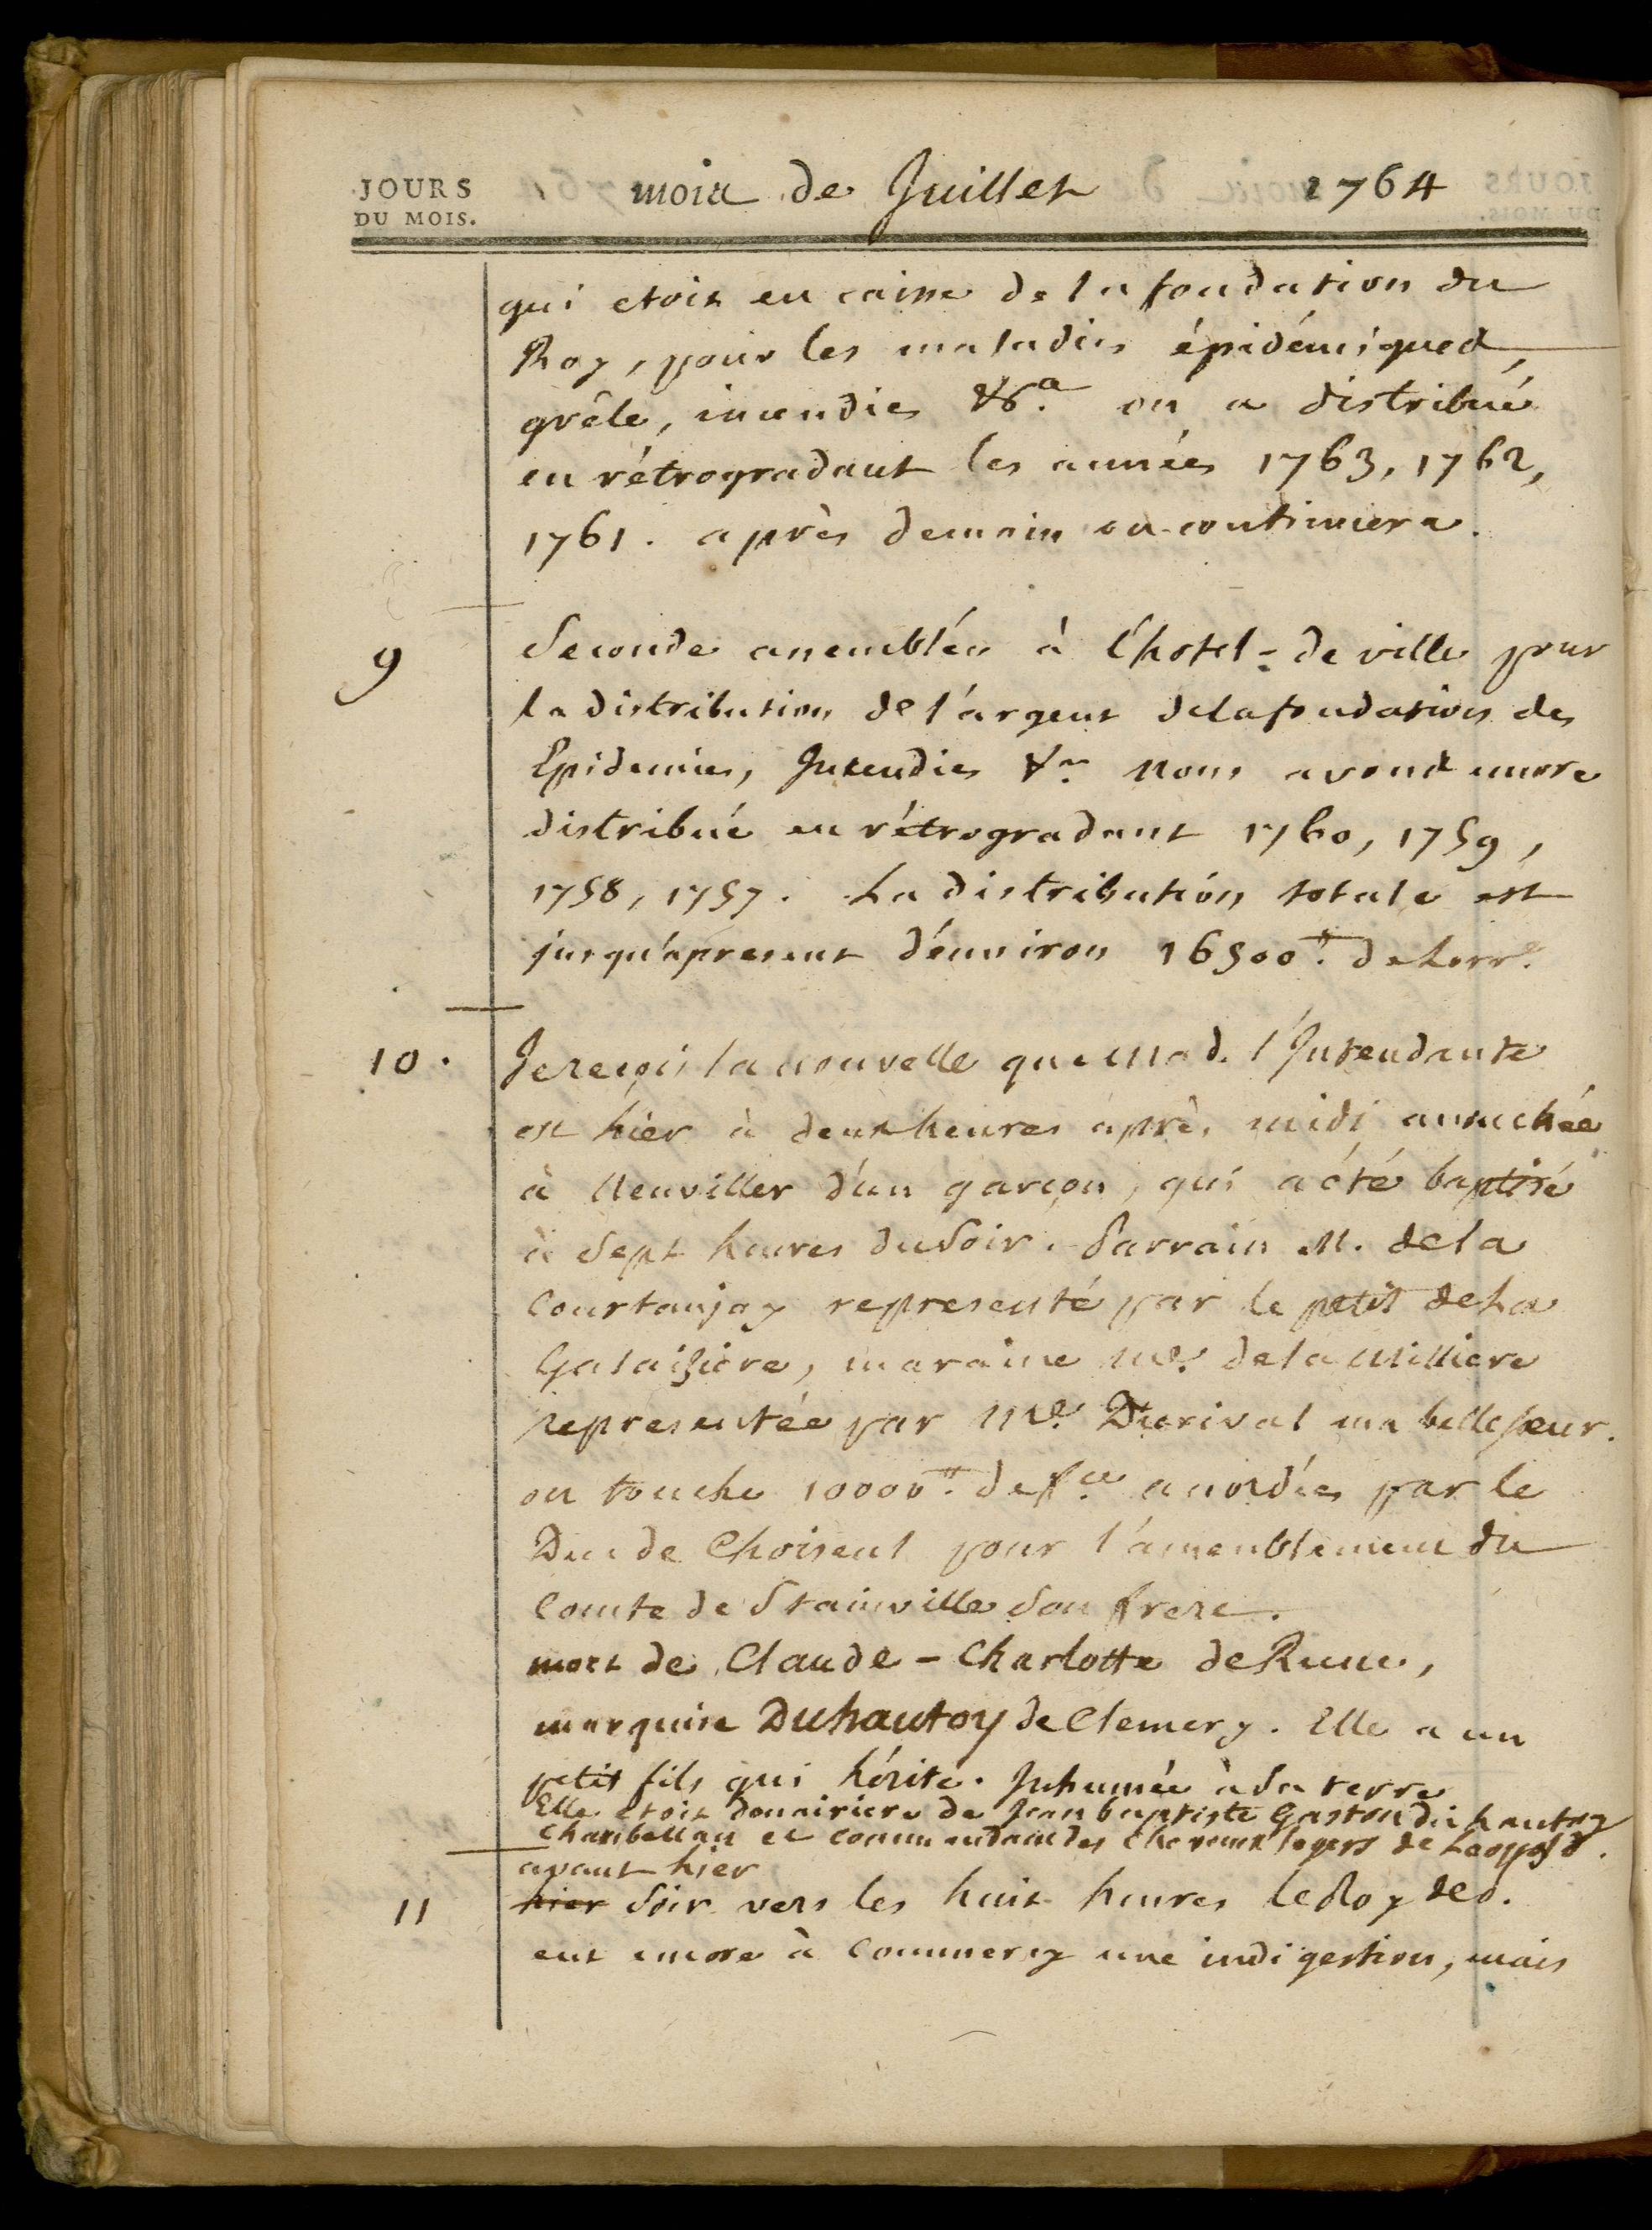 JOURS
DU MOIS.
mois de Juillet 1764
qui etoit en caisse de la fondation du
Roy, pour les maladies épidémiques,
grêle, incendies &c.a on a distribué
en rétrogradant les années 1763, 1762,
1761. après demain on continuera.
9 Seconde assemblée à l'hotel-de ville pour
la distribution de l'argent de la fondation des
Epidemies, Incendies &a nous avons encore
distribué en rétrogradant 1760, 1759,
1758, 1757. La distribution totale est
jusqu'apresent d'environ 16500.tt de Lorr.e
10. Je reçois la nouvelle que Mad. l'Intendante
est hier à deux heures après midi accouchée
à Neuviller d'un garçon, qui a été baptisé
à Sept heures du Soir. Parrain M. de la
Courtaujay representé par le petit de La
Galaiziere, maraine Me. de la Milliere
representée par Me. Durival ma belle soeur.
on touche 10000.tt de f.ce accordées par le
Duc de Choiseul pour l'ameublement du
Comte de Stainville Son frere.
mort de Claude-Charlotte de Rune,
marquise Duhautoy de Clemery. Elle a un
petit fils qui hérite. Inhumée à Sa terre
Elle etoit douairiere de Jean baptiste Gaston du hautoy
Chambellan et commendant des Chevaux legers de Leopold.
avant hier
11 hier Soir vers les huit heures le Roy de P.
eut encore à Commercy une indigestion, mais